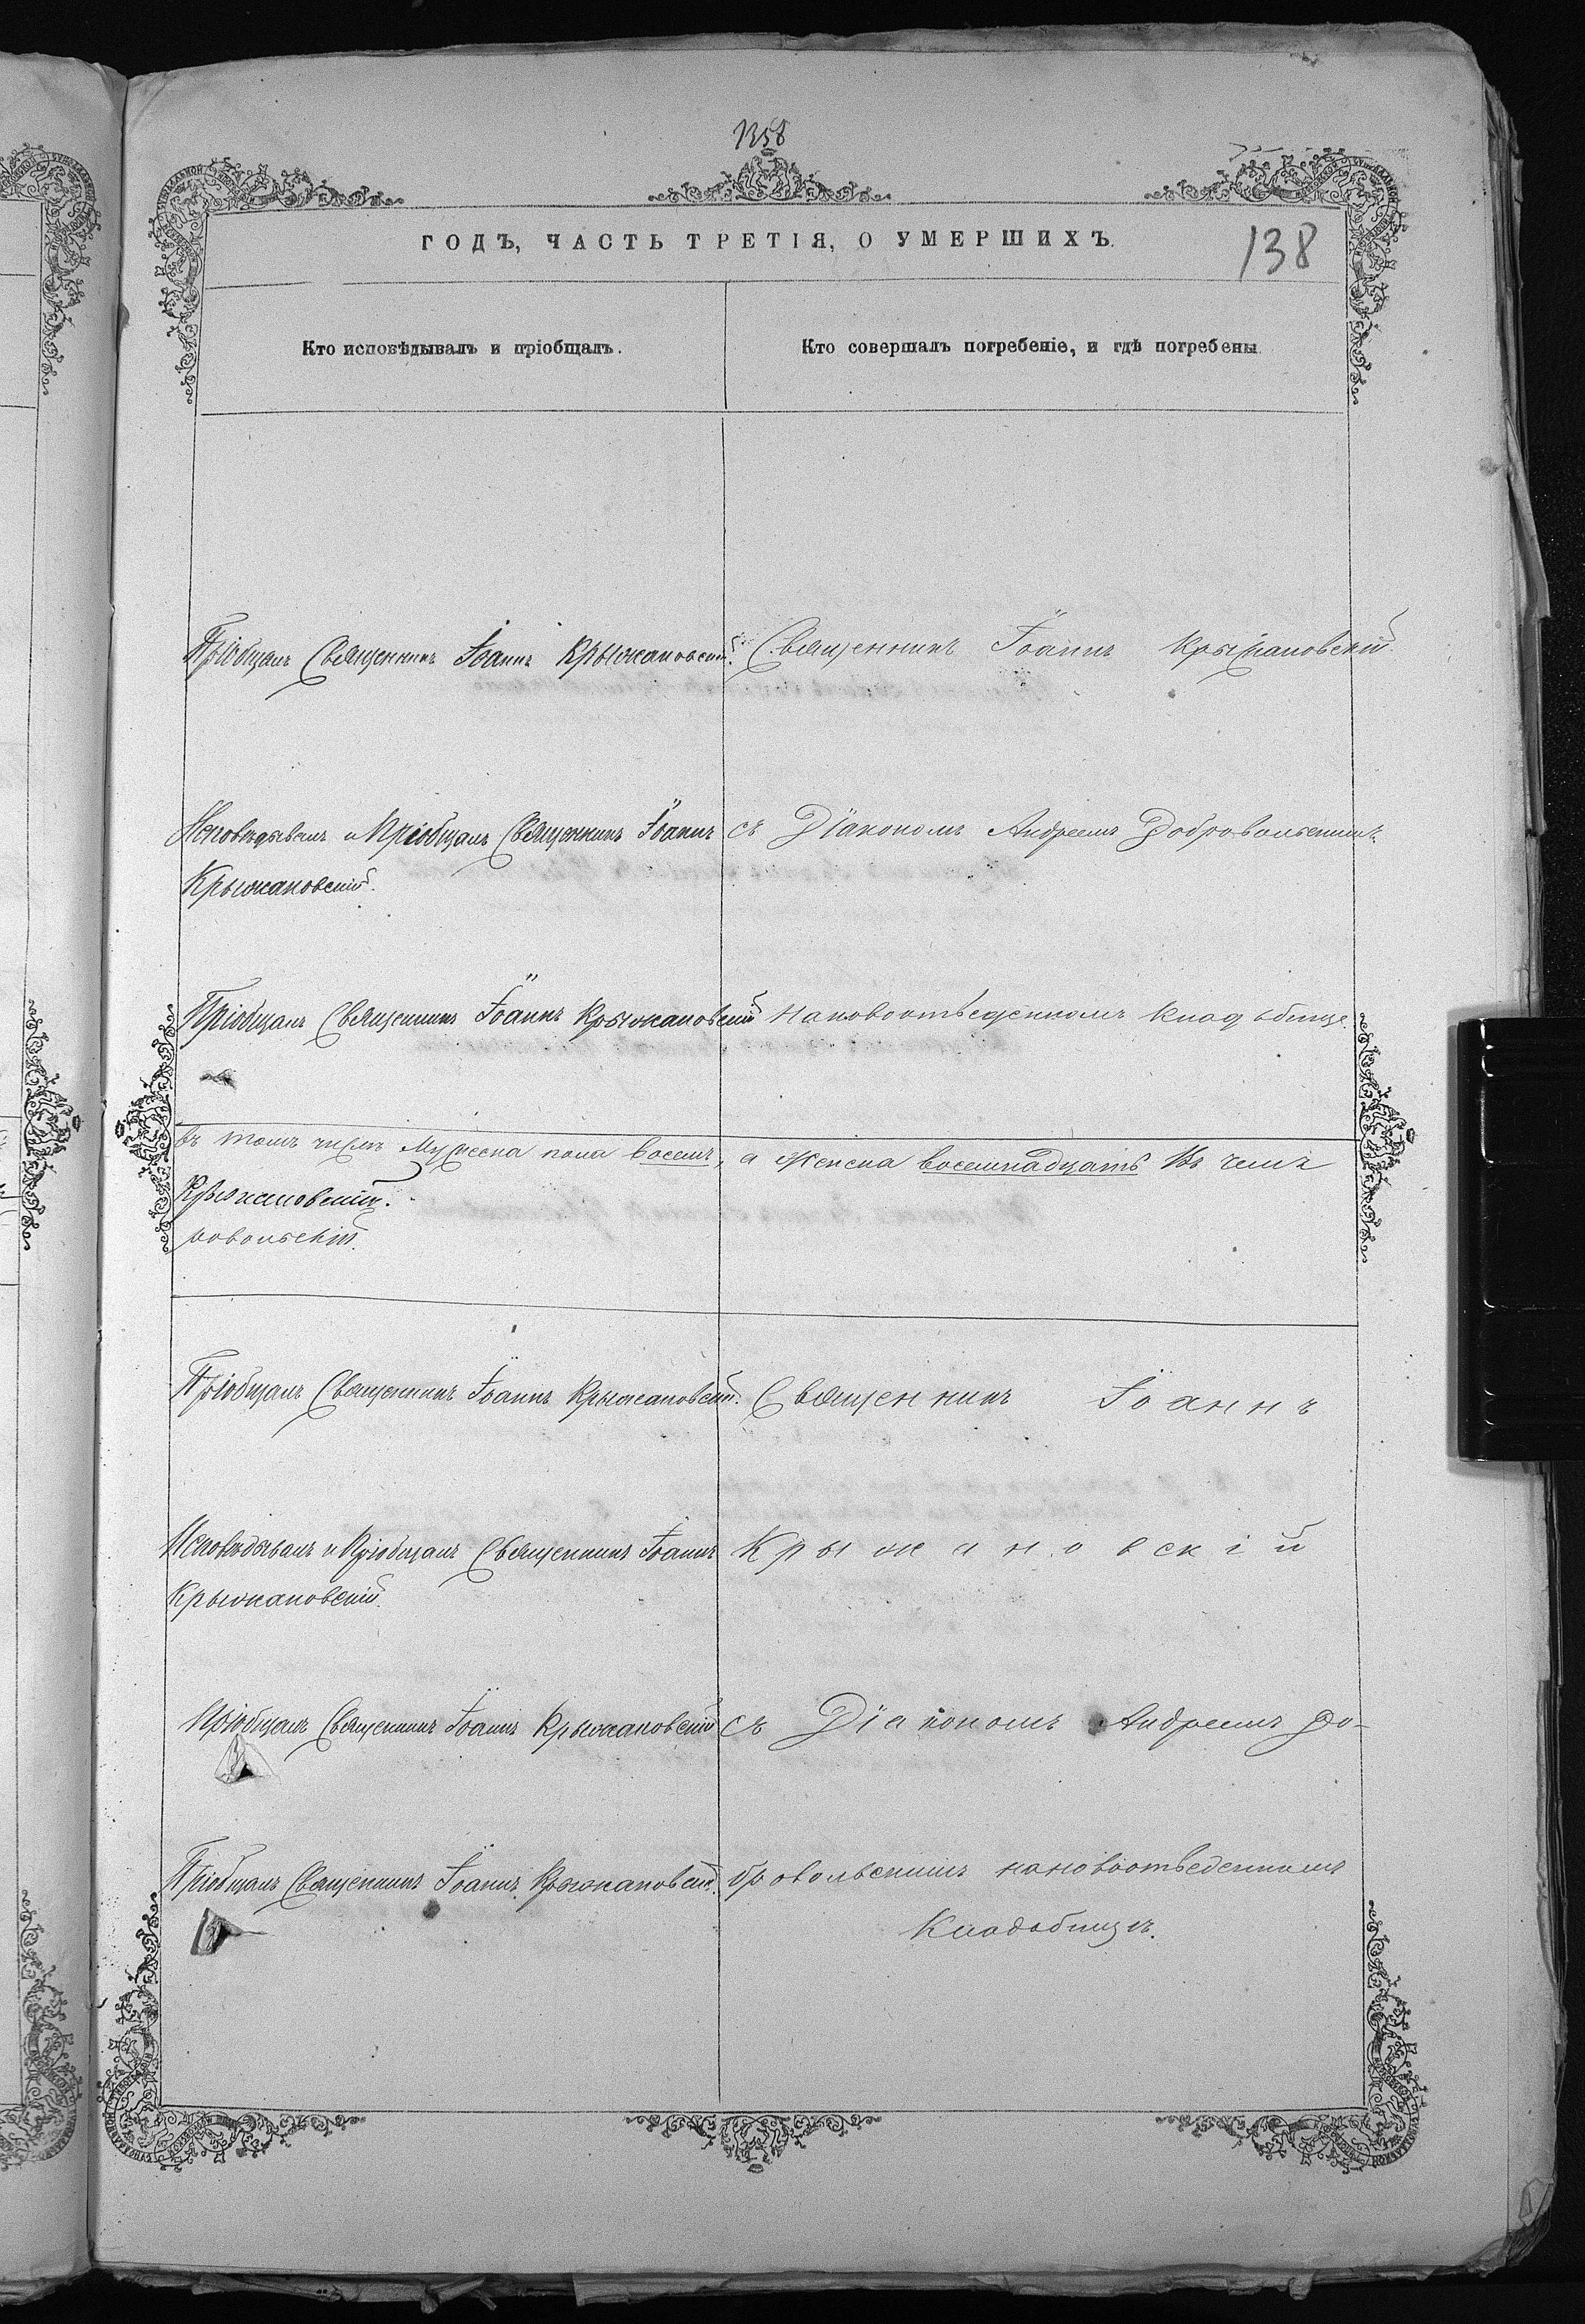 1358
ГОДЪ, ЧАСТЬ ТРЕТІЯ, О УМЕРШИХЪ.
138
Кто исповѣдывалъ и пріобщалъ.
Кто совершалъ погребеніе, и гдѣ погребены.
Пріобщалъ Священникъ Іоаннъ Крыжановскій.
Священникъ Іоаннъ Крыжановскій.
Исповѣдывалъ и Пріобщалъ Священникъ Іоаннъ
Крыжановскій.
съ Діакономъ Андреемъ Добровольскимъ
Пріобщалъ Священникъ Іоаннъ Крыжановскій
Нановоотведенномъ кладбище.
въ томъ числѣ Мужеска пола восемь, а Женска восемнадцать Въ чемъ
Крыжановскій.
ровольскій.
Пріобщалъ Священникъ Іоаннъ Крыжановскій.
Священникъ Іоаннъ
Исповѣдывалъ и Пріобщалъ Священникъ Іоаннъ
Крыжановскій.
Крыжановскій
Пріобщалъ Священникъ Іоаннъ Крыжановскій
съ Діакономъ Андреемъ До-
Пріобщалъ Священникъ Іоаннъ Крыжановскій.
бровольскимъ нановоотведенномъ
Кладбищѣ.